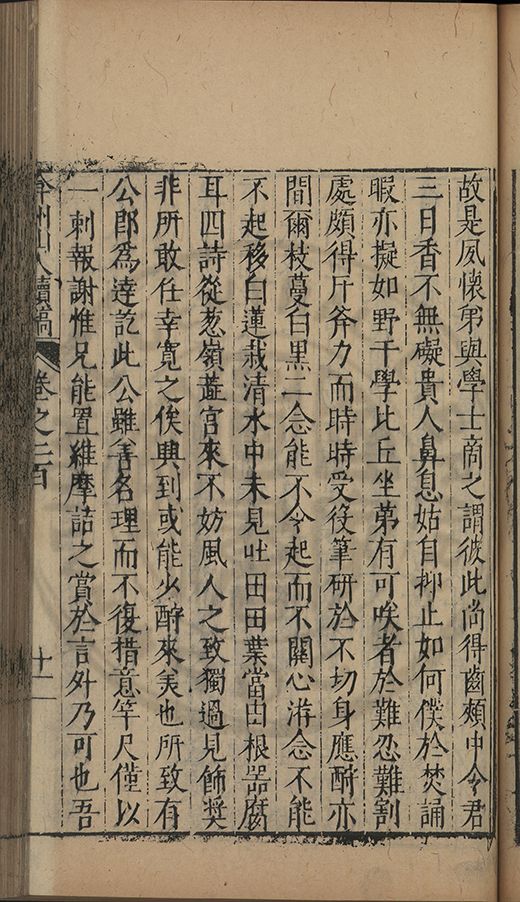 故是夙懷弟與學士商之謂彼此尚得齒頰中令君
三日香不無礙貴人鼻息姑自抑止如何僕於焚誦
暇亦擬如野干學比丘坐苐有可唉者於難忍難割
處頗得斤斧力而時時受役筆研於不切身應酧亦
間爾枝蔓白黑二念能不令起而不關心游念不能
不起移白蓮栽清水中未見吐田田葉當由根器腐
耳四詩從葱嶺葢官來不妨風人之致獨過見飾奬
非所敢任幸寬之俟興到或能少酧來美也所致有
公郎為達訖此公雖善名理而不復惜意竿尺僅以
一刺報謝惟兄能置維摩詰之賞於言外乃可也吾
弇州山人續稿 卷之二百 十二